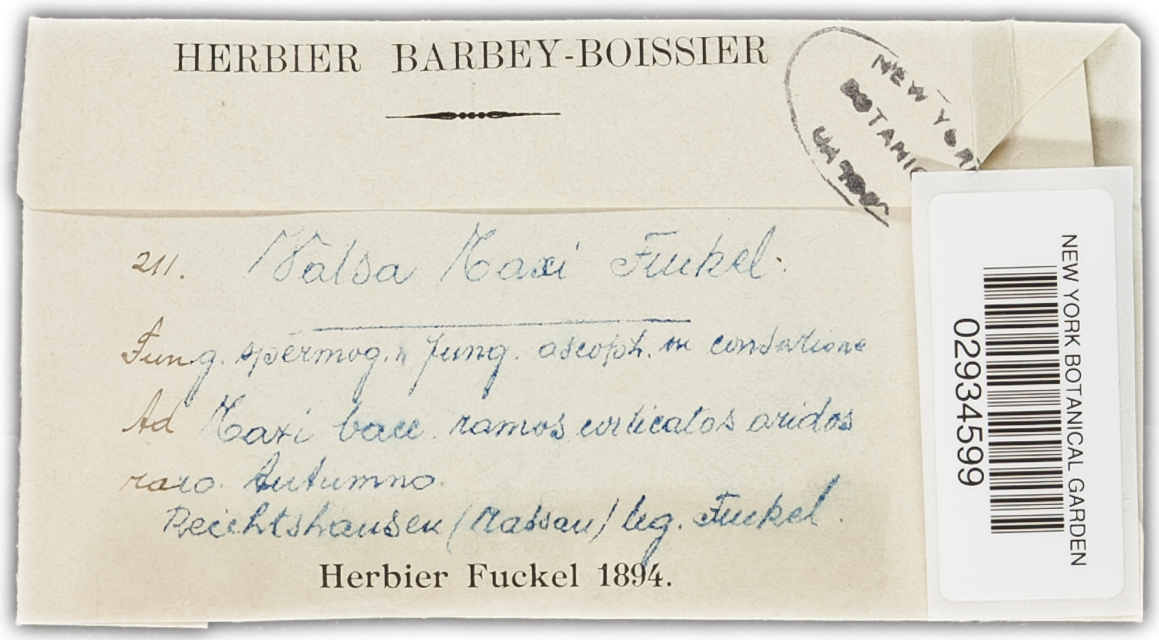 HERBIER BARBEY-BOISSIER
NEW YORK
BOTANIC
GARDEN
211. Valsa Taxi Fuckel.
Fung. spermog. & fung. ascoph. in consortione
Ad Taxi bacc. ramos corticatos aridos
raro. Autumno.
Reichtshausen (Nassau) leg. Fuckel.
Herbier Fuckel 1894.
NEW YORK BOTANICAL GARDEN
02934599